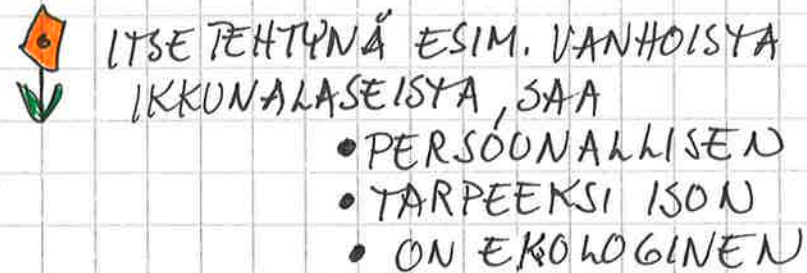 ITSE TEHTYNÄ ESIM. VANHOISTA
IKKUNALASEISTA, SAA
• PERSOONALLISEN
• TARPEEKSI ISON
• ON EKOLOGINEN